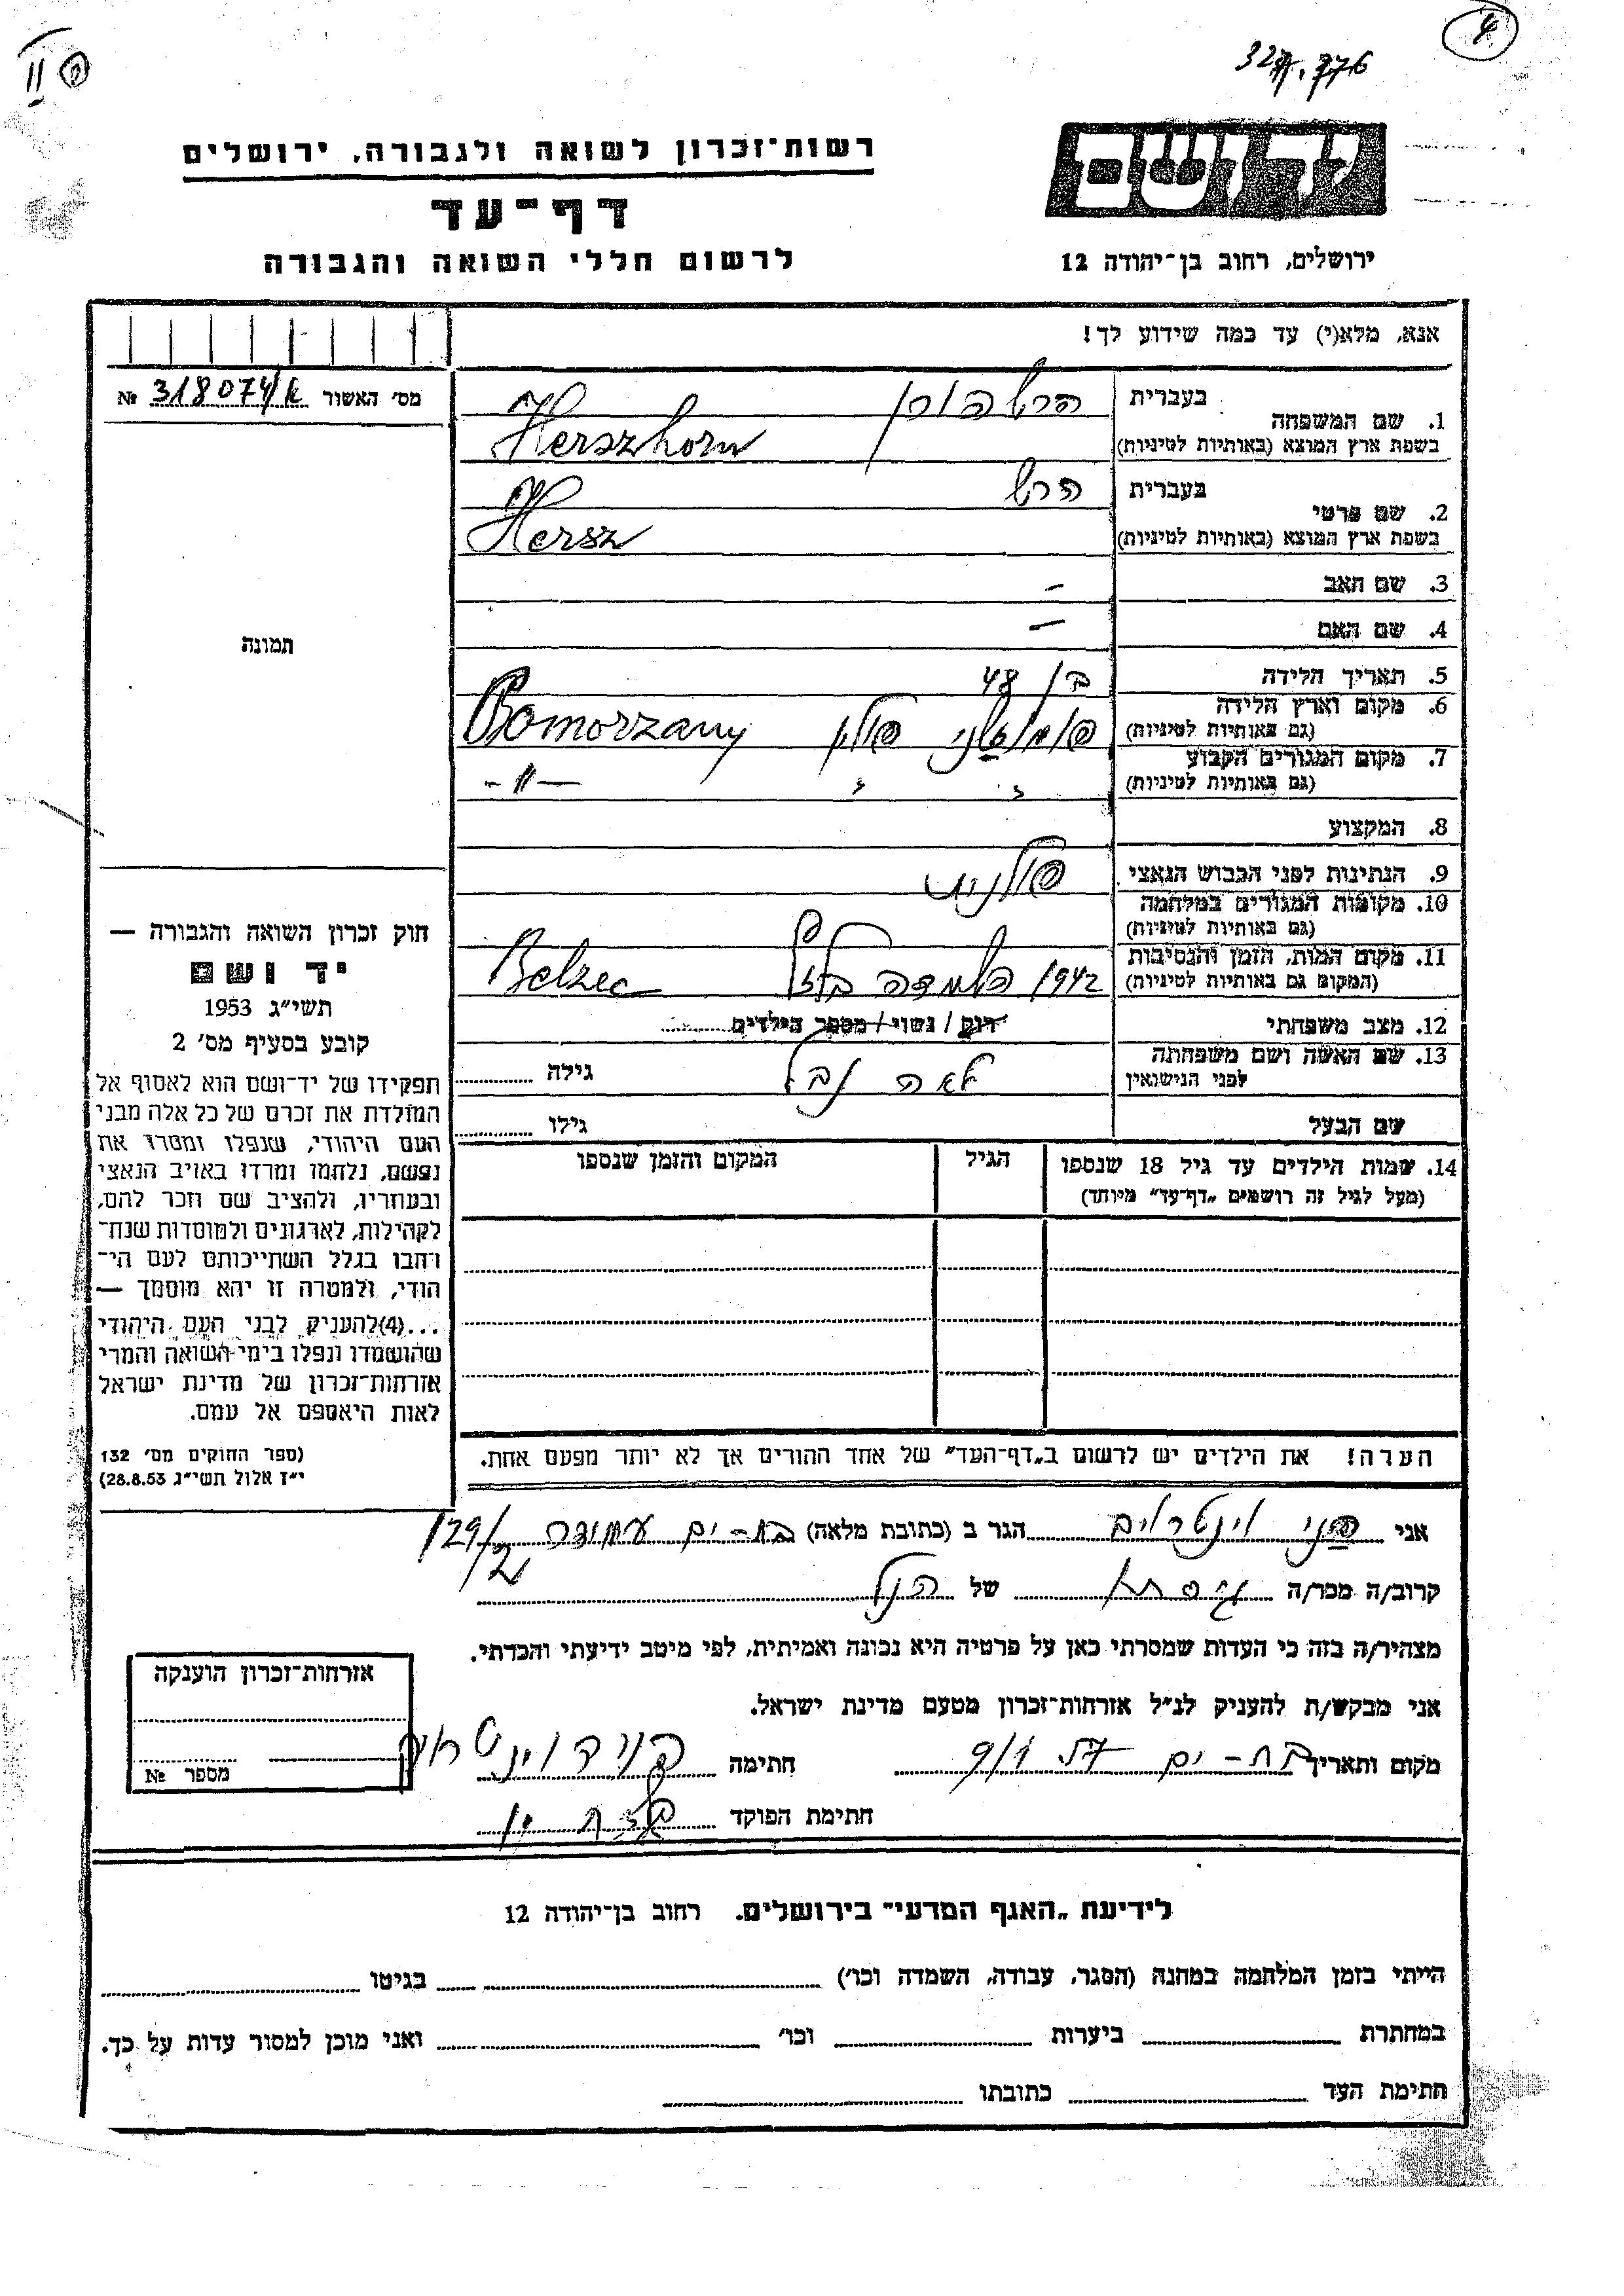 4
327. 776
II
יד ושם
ירושלים, רחוב בן־יהודה 12
רשות־זכרון לשואה ולגבורה, ירושלים
דף־עד
לרשום חללי השואה והגבורה
אנא, מלא(י) עד כמה שידוע לך!
מס׳ האשור 318074/k №
תמונה
1. שם המשפחה בעברית הרשהורן
בשפת ארץ המוצא (באותיות לטיניות) Herszhorn
2. שם פרטי בעברית הרש
בשפת ארץ המוצא (באותיות לטיניות) Hersz
3. שם האב —
4. שם האם —
5. תאריך הלידה בן 48
6. מקום וארץ הלידה (גם באותיות לטיניות) פומוז'ני פולין Pomorzany
7. מקום המגורים הקבוע (גם באותיות לטיניות) " " —"—
8. המקצוע
9. הנתינות לפני הכבוש הנאצי פולנית
10. מקומות המגורים במלחמה (גם באותיות לטיניות)
11. מקום המות, הזמן והנסיבות (המקום גם באותיות לטיניות) 1942 השמדה בלזץ Belzec
12. מצב משפחתי רווק / נשוי / מספר הילדים
13. שם האשה ושם משפחתה לפני הנישואין לאה גילה
שם הבעל גילו
14. שמות הילדים עד גיל 18 שנספו הגיל המקום והזמן שנספו
(מעל לגיל זה רושמים „דף־עד״ מיוחד)
הערה! את הילדים יש לרשום ב„דף־העד״ של אחד ההורים אך לא יותר מפעם אחת.
חוק זכרון השואה והגבורה —
יד ושם
תשי״ג 1953
קובע בסעיף מס׳ 2
תפקידו של יד־ושם הוא לאסוף אל
המולדת את זכרם של כל אלה מבני
העם היהודי, שנפלו ומסרו את
נפשם, נלחמו ומרדו באויב הנאצי
ובעוזריו, ולהציב שם וזכר להם,
לקהילות, לארגונים ולמוסדות שנח־
רבו בגלל השתייכותם לעם הי־
הודי, ולמטרה זו יהא מוסמך —
...(4)להעניק לבני העם היהודי
שהושמדו ונפלו בימי השואה והמרי
אזרחות־זכרון של מדינת ישראל
לאות היאספם אל עמם.
(ספר החוקים מס׳ 132
י״ז אלול תשי״ג 28.8.53)
אני פני וינטרוים הגר ב (כתובת מלאה) בת-ים 129/2
קרוב/ה מכר/ה גיסתו של הנ"ל
מצהיר/ה בזה כי העדות שמסרתי כאן על פרטיה היא נכונה ואמיתית, לפי מיטב ידיעתי והכרתי.
אני מבקש/ת להעניק לנ״ל אזרחות־זכרון מטעם מדינת ישראל.
מקום ותאריך בת-ים חתימה
חתימת הפוקד
אזרחות־זכרון הוענקה
מספר №
לידיעת „האגף המדעי״ בירושלים. רחוב בן־יהודה 12
הייתי בזמן המלחמה במחנה (הסגר, עבודה, השמדה וכו׳) בגיטו
במחתרת ביערות וכו׳ ואני מוכן למסור עדות על כך.
חתימת העד כתובתו